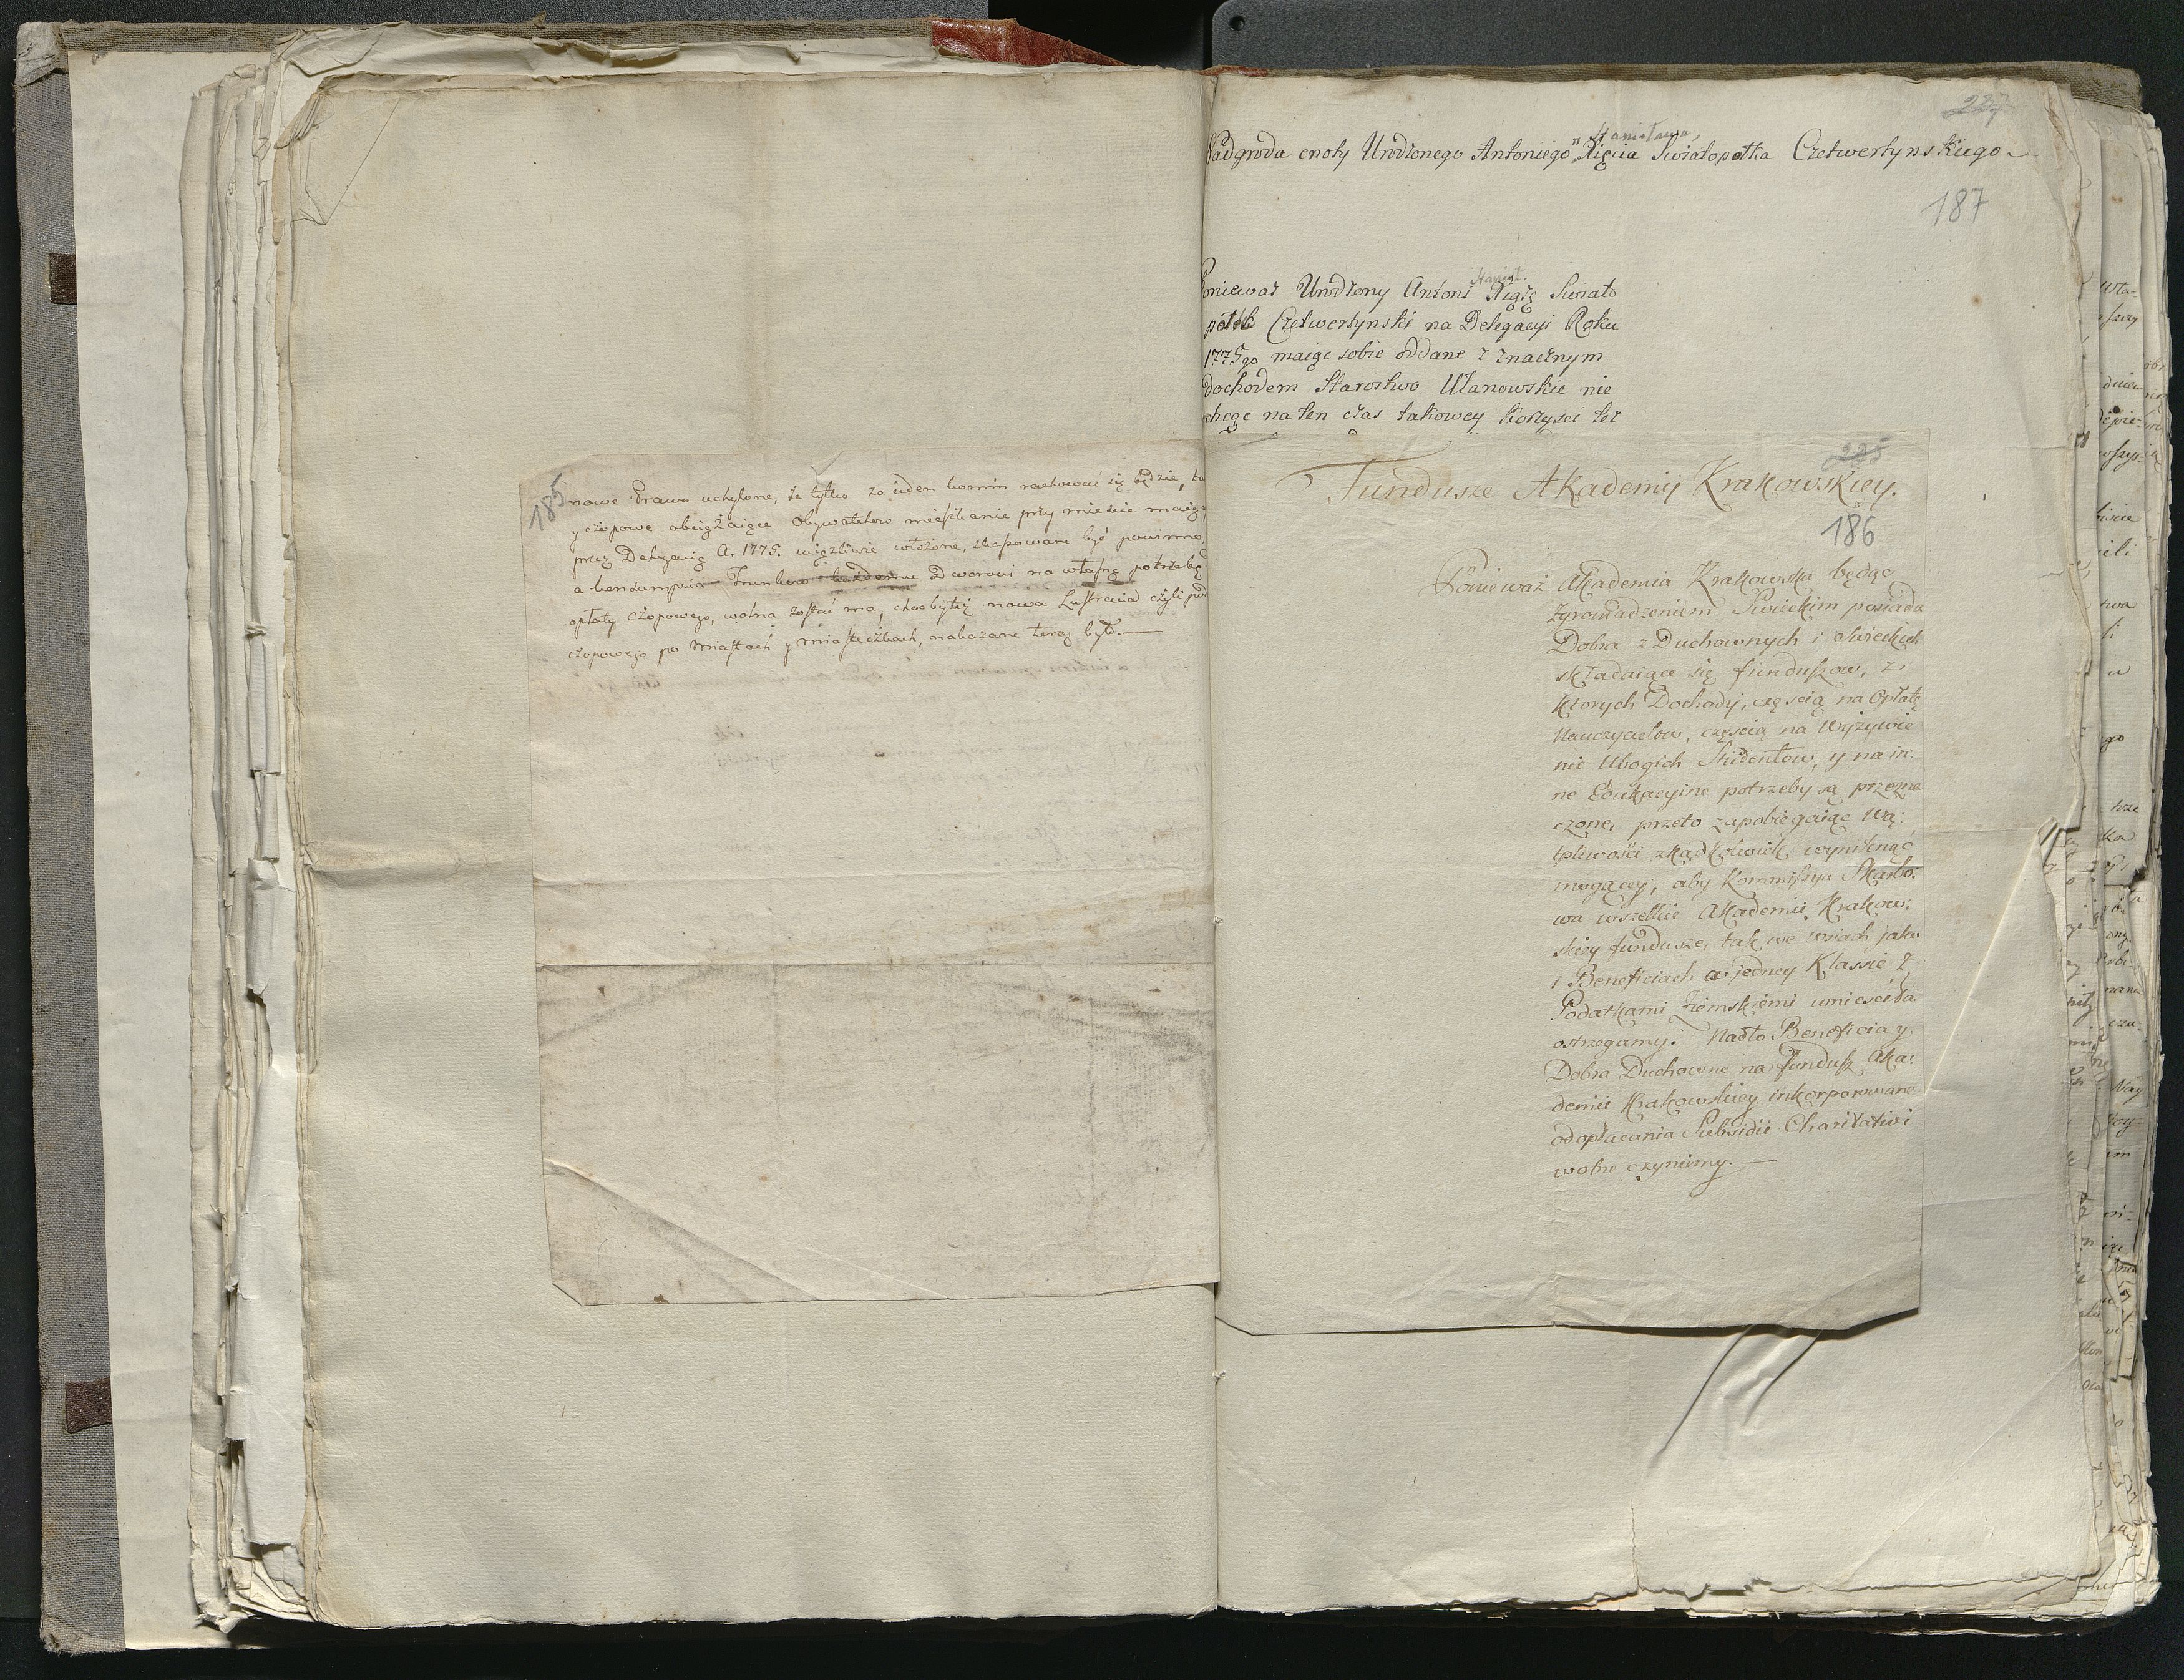 185
nowe Prawo uchylone, że tylko za ieden komin rachować się będzie, to
y czopowe obciążaiące Obywatelow mieszkanie przy mieście maiące
przez Delegacią A. 1775. włożone, skasowane być powinno,
a konsumpcia Trunkow każdemu Dworowi na własną potrzebę
opłaty czopowego, wolna zostać ma, choćbyteż nowa Lustracia czyli
czopowego po Miastach y miasteczkach, nakazane teraz było.
237
Stanisława
Nadgroda cnoty Urodzonego Antoniego Xięcia Swiatopołka Czetwertynskiego
187
Stanisł.
Poniewaz Urodzony Antoni Xiąże Swiato
połk Czetwertynski na Delegacyi Roku
1775go maiąc sobie oddane z znacznym
Dochodem Starostwo Ułanowskie nie
chcąc na ten czas takowey korzysci też
235
Fundusze Akademij Krakowskiey.
186
Ponieważ Akademia Krakowska będąc
Zgromadzeniem Swieckim posiada
Dobra z Duchownych i Swieckich
składaiące się funduszow, z
ktorych Dochody, częscią na Opłatę
Nauczycielow, częscią na Wyżywie
nie Ubogich Studentow, y na in:
ne Edukacyine potrzeby są przezna
czone, przeto zapobiegaiąc Wą:
tpliwości zkądkolwiek wyniknąc
mogącey, aby Kommissya Skarbo:
wa wszelkie Akademii Krakow:
skiey fundusze, tak we wsiach jako
i Beneficiach w jedney Klassie z
Podatkami Ziemskiemi umiesciła
ostrzegamy. Nadto Beneficia y
Dobra Duchowne na fundusz Aka:
demii Krakowskiey inkorporowane
od opłacania Subsidii Charitativi
wolne czyniemy.